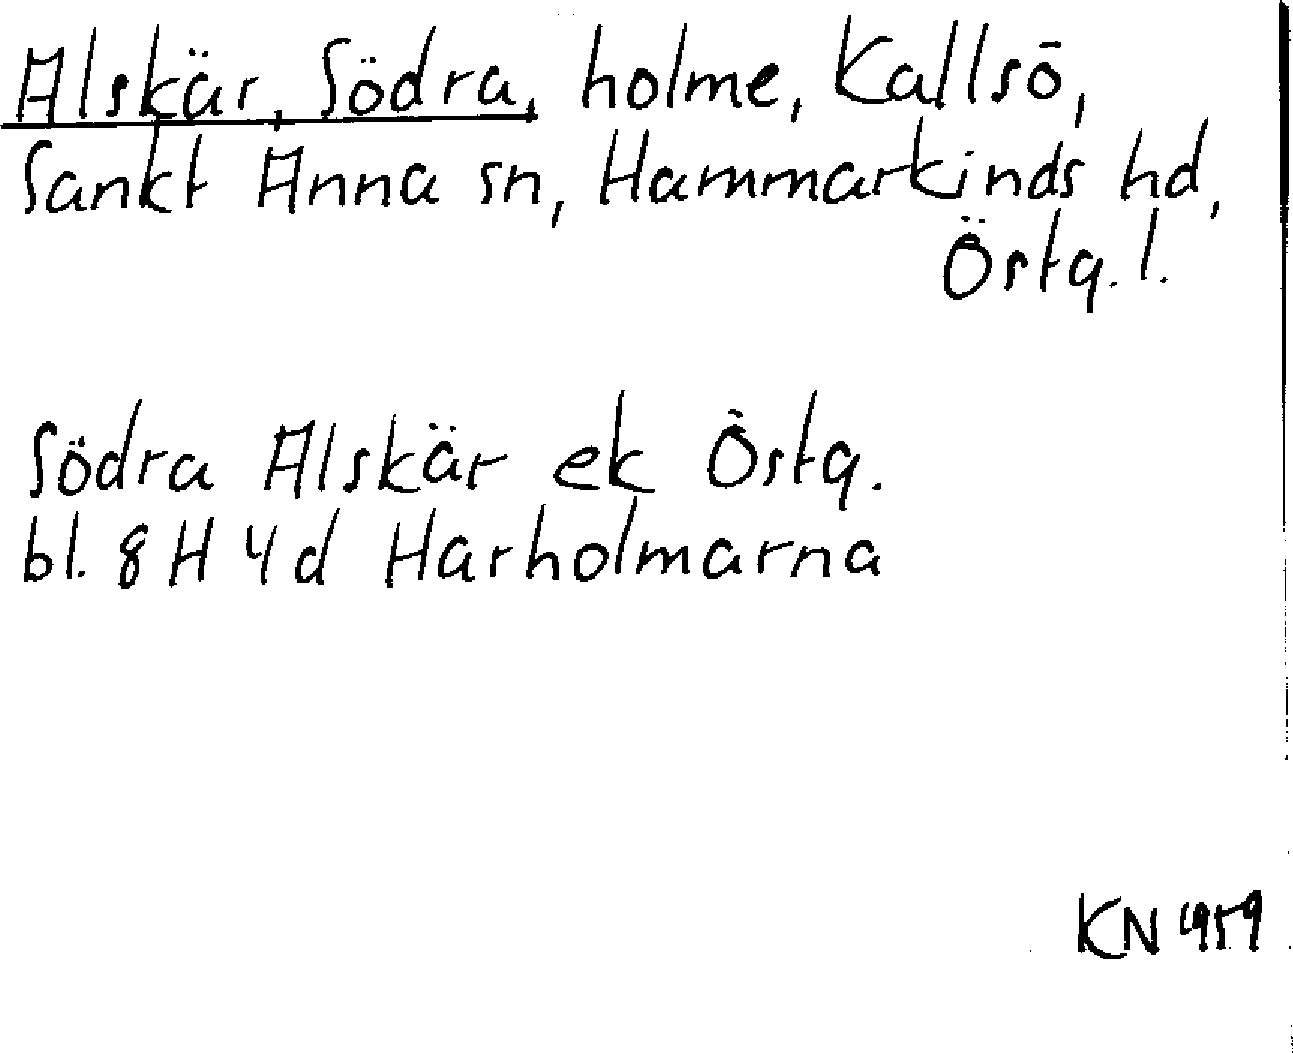 Alskär, Södra, holme, Kallsö,
Sankt Anna sn, Hammarkinds hd,
Östg. l.
Södra Alskär ek Östg.
bl. 8H 4d Harholmarna
KN 1959